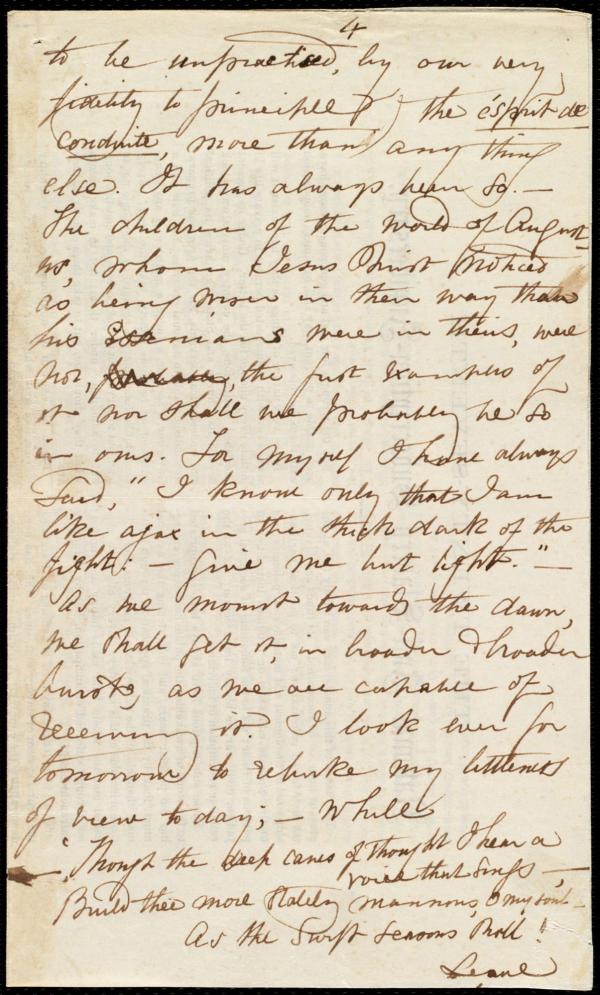 4
to be unpracticed, by our very
fidelity to principle, the esprit de
conduite, more than any thing
else. It has always been so. —
The children of the world of August-
us, whom Jesus Christ noticed
as being wiser in their way than
his Essenians were in theirs, were
not, probably, the first examples of
it nor shall we probably be so
in ours. For myself I have always
said, "I know only that I am
like ajax in the thick dark of the
fight: — give me but light." —
As we mount towards the dawn,
we shall get it, in broader & broader
bursts, as we are capable of
receiving it. I look ever for
tomorrow to rebuke my littleness
of view to day; — While
— "Though the deep caves of thought I hear a
voice that sings, —
Build thee more stately mansions, O my soul —
As the swift seasons roll!
Leave